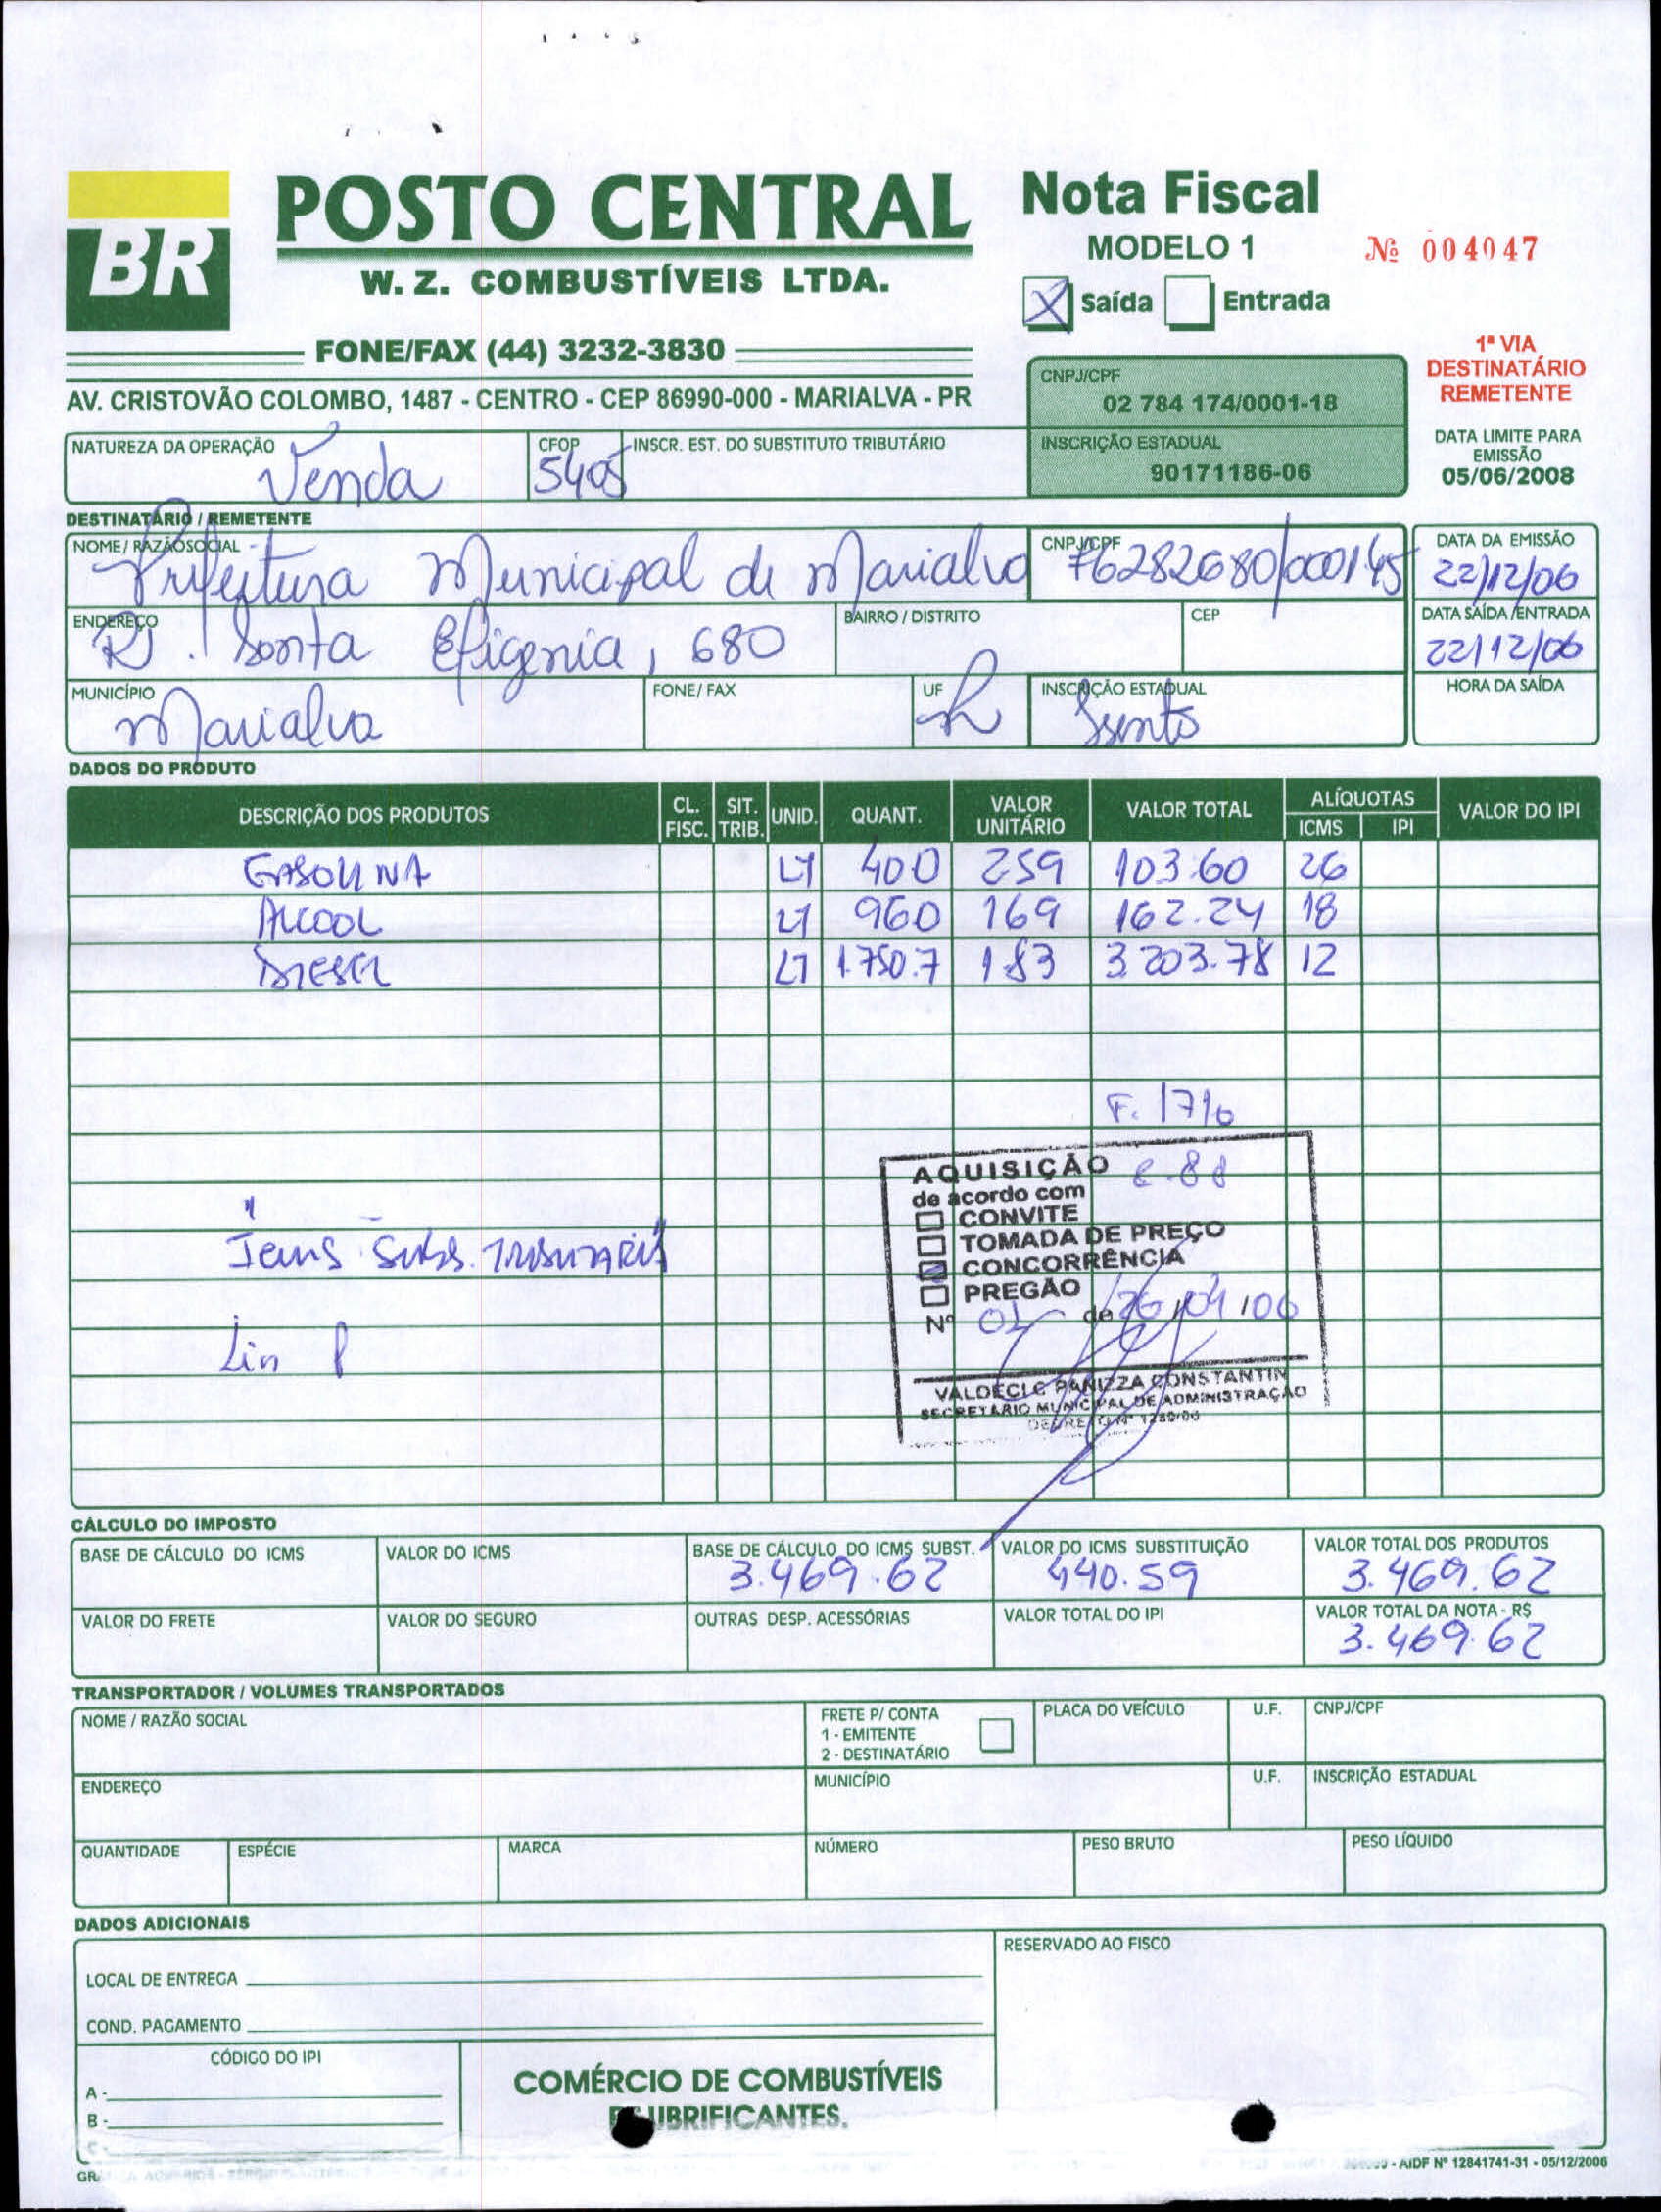 BR
POSTO CENTRAL
W. Z. COMBUSTÍVEIS LTDA.
FONE/FAX (44) 3232-3830
AV. CRISTOVÃO COLOMBO, 1487 - CENTRO - CEP 86990-000 - MARIALVA - PR
Nota Fiscal
MODELO 1
Nº 004047
X Saída Entrada
1ª VIA
DESTINATÁRIO
REMETENTE
CNPJ/CPF
02 784 174/0001-18
INSCRIÇÃO ESTADUAL
90171186-06
DATA LIMITE PARA
EMISSÃO
05/06/2008
NATUREZA DA OPERAÇÃO
Venda
CFOP
5405
INSCR. EST. DO SUBSTITUTO TRIBUTÁRIO
DESTINATÁRIO / REMETENTE
NOME / RAZÃO SOCIAL
Prefeitura Municipal de Marialva
CNPJ/CPF
76282680/000145
DATA DA EMISSÃO
22/12/06
ENDEREÇO
R. Santa Efigenia, 680
BAIRRO / DISTRITO
CEP
DATA SAÍDA /ENTRADA
22/12/06
MUNICÍPIO
Marialva
FONE/ FAX
UF
INSCRIÇÃO ESTADUAL
Isento
HORA DA SAÍDA
DADOS DO PRODUTO
DESCRIÇÃO DOS PRODUTOS CL. FISC. SIT. TRIB. UNID. QUANT. VALOR UNITÁRIO VALOR TOTAL ALÍQUOTAS ICMS IPI VALOR DO IPI
GASOLINA LT 400 259 103.60 26
ALCOOL LT 960 169 162.24 18
DIESEL LT 1.750.7 183 3.203.78 12
F. 1716
AQUISIÇÃO
de acordo com
CONVITE
TOMADA DE PREÇO
CONCORRÊNCIA
PREGÃO
Nº 01 de 26/04/06
VALDECIR PANIZZA CONSTANTIN
SECRETÁRIO MUNICIPAL DE ADMINISTRAÇÃO
Subs. TRIBUTARIA
CÁLCULO DO IMPOSTO
BASE DE CÁLCULO DO ICMS
VALOR DO ICMS
BASE DE CÁLCULO DO ICMS SUBST.
3.469.62
VALOR DO ICMS SUBSTITUIÇÃO
440.59
VALOR TOTAL DOS PRODUTOS
3.469.62
VALOR DO FRETE
VALOR DO SEGURO
OUTRAS DESP. ACESSÓRIAS
VALOR TOTAL DO IPI
VALOR TOTAL DA NOTA - R$
3.469.62
TRANSPORTADOR / VOLUMES TRANSPORTADOS
NOME / RAZÃO SOCIAL
FRETE P/ CONTA
1 - EMITENTE
2 - DESTINATÁRIO
PLACA DO VEÍCULO
U.F.
CNPJ/CPF
ENDEREÇO
MUNICÍPIO
U.F.
INSCRIÇÃO ESTADUAL
QUANTIDADE
ESPÉCIE
MARCA
NÚMERO
PESO BRUTO
PESO LÍQUIDO
DADOS ADICIONAIS
LOCAL DE ENTREGA
COND. PAGAMENTO
RESERVADO AO FISCO
CÓDIGO DO IPI
A -
B -
C -
COMÉRCIO DE COMBUSTÍVEIS
E LUBRIFICANTES.
- AIDF Nº 12841741-31 - 05/12/2006